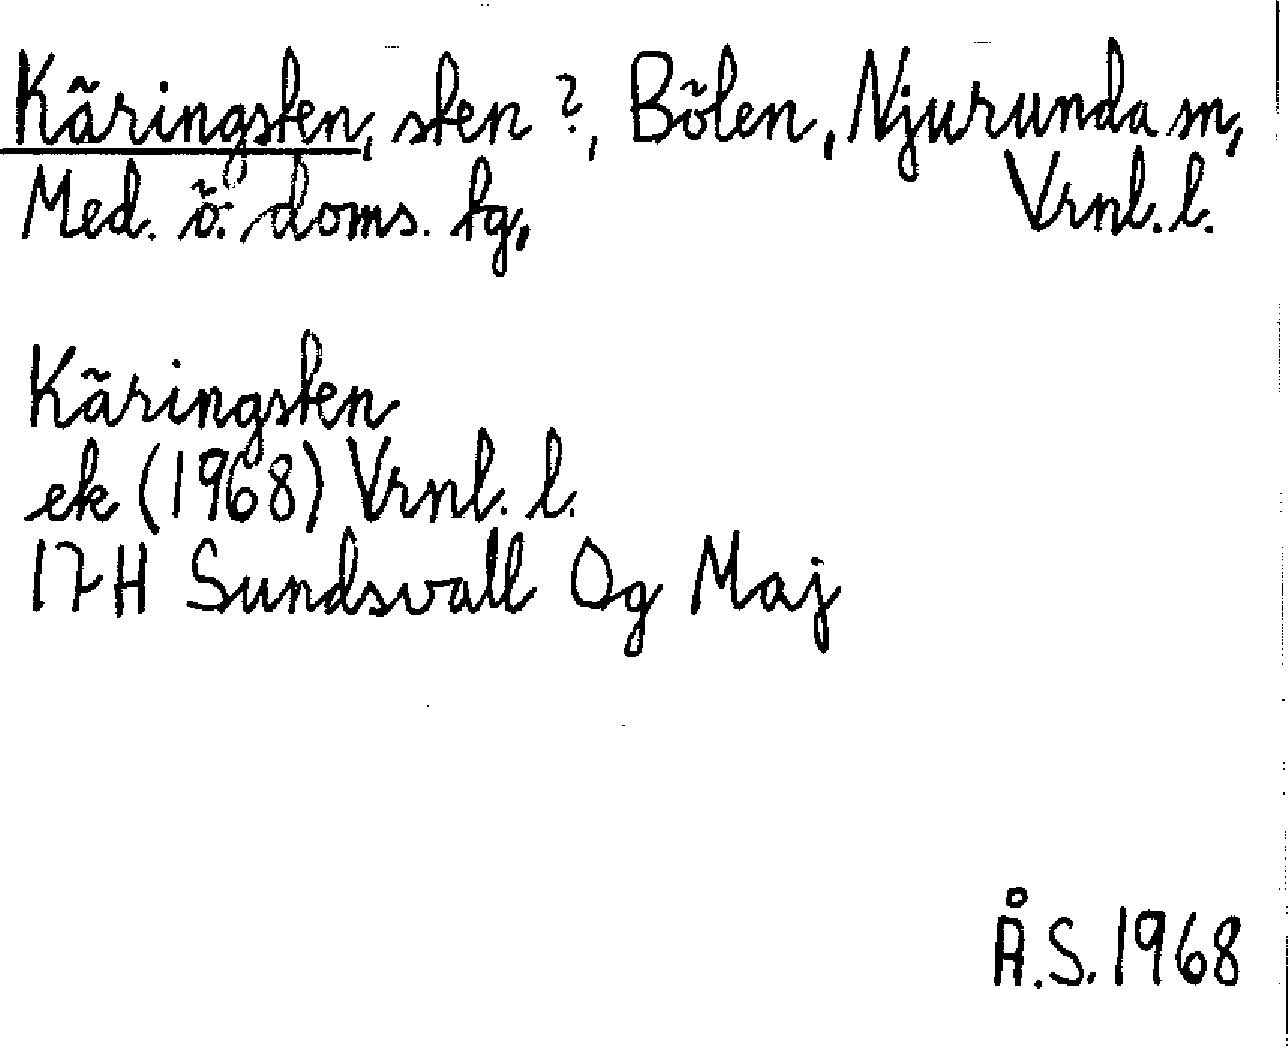 Käringsten, sten?, Bölen, Njurunda sn,
Med. ö. doms. tg, Vrnl. l.
Käringsten
ek (1968) Vrnl. l.
17H Sundsvall Og Maj
Å.S. 1968